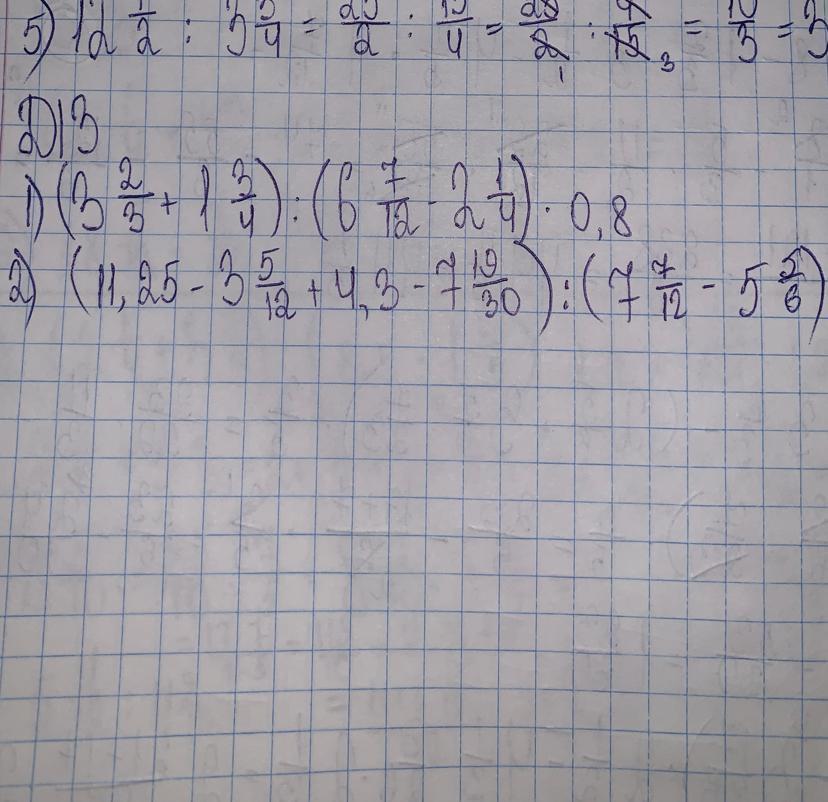 5) 12 1/2 : 3 3/4 = 25/2 : 15/4 = 25/2 : 4/15 = 10/3 = 3
D/З
1) (3 2/3 + 1 3/4) : (6 7/12 - 2 1/4) · 0,8
2) (11,25 - 3 5/12 + 4,3 - 7 19/30) : (7 7/12 - 5 5/6)